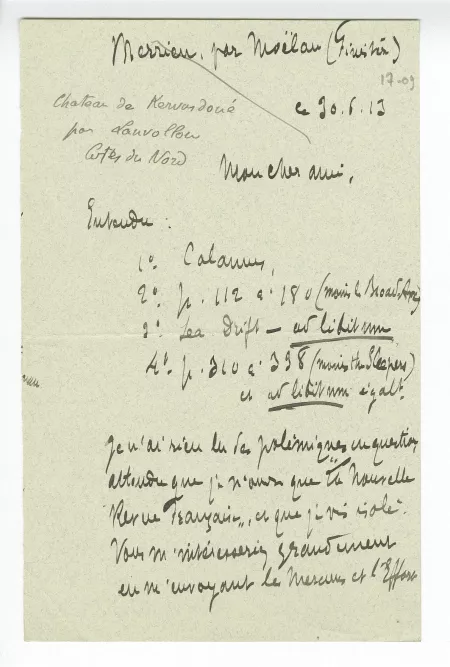 Merrien, par Moëlan (Finistère)
17-09
ce 30.6.13
Chateau de Kervasdoué
par Lanvollon
Côtes du Nord
Mon cher ami,
Entendu :
1º. Calamus,
2º. p. 112 à 180 (moins le Broad-Axe)
3º. Sea Drift – ad libitum
4º. p. 310 à 338 (moins the Sleepers)
et ad libitum égalt.
Je n'ai rien lu des polémiques en question
attendu que je n'ai que "la Nouvelle
Revue Française", et que je vis isolé.
Vous m'intéresseriez grandement
en m'envoyant les Mercures et l'Effort